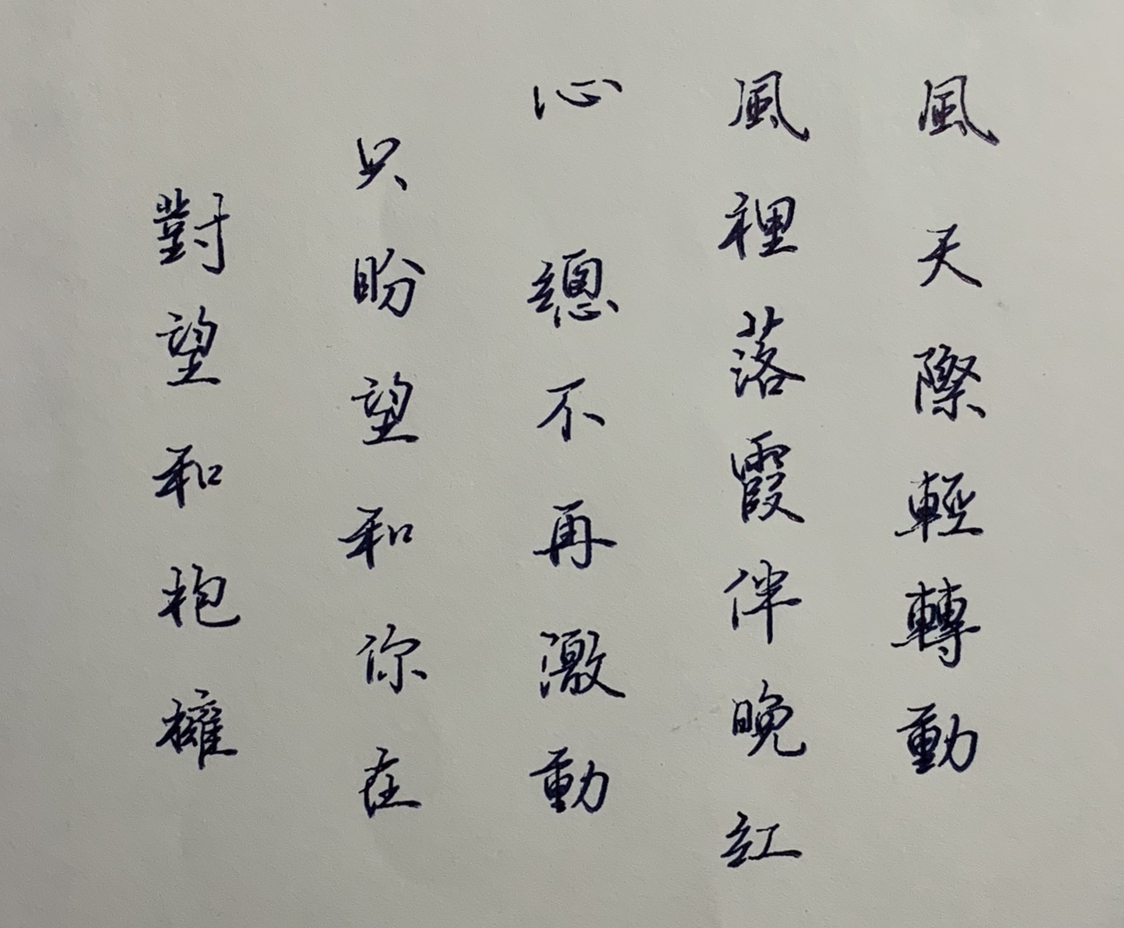 風天際輕轉動
風裡落霞伴晚紅
心總不再激動
只盼望和你在
對望和抱擁